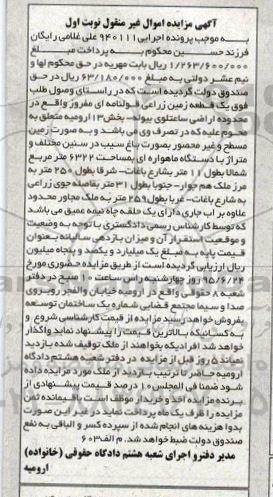 آگهی مزایده اموال غیر منقول نوبت اول
به موجب پرونده اجرایی ۹۴۰۱۱۱ علی غلامی رایگان
فرزند حسین محکوم به پرداخت مبلغ
۱/۲۶۳/۶۰۰/۰۰۰ ریال بابت مهریه در حق محکوم لها و
نیم عشر دولتی به مبلغ ۶۳/۱۸۰/۰۰۰ ریال در حق
صندوق دولت گردیده است که در راستای وصول طلب
فوق یک قطعه زمین زراعی قولنامه ای مفروز واقع در
محدوده اراضی ساعتلوی بیوله- بخش۱۳ارومیه متعلق به
محکوم علیه که در تصرف وی می باشد و به صورت زمین
مسطح و غیر محصور بصورت باغ سیب در سنین مختلف و
متراژ با دستگاه ماهواره ای بمساحت ۶۳۲۲ متر مربع
شمالا بطول ۱۱ متر بشارع باغات- شرقا بطول ۲۵۰ متر به
مرز ملک هم جوار- جنوبا بطول ۳۱ متر بفاصله جوی زراعی
به شارع باغات- غربا بطول۲۵۹ متر به ملک مجاور محدود
علاوه بر اب جاری دارای یک حلقه چاه نیمه عمیق می باشد
که توسط کارشناس رسمی دادگستری با توجه به وضعیت
و موقعیت استقرار آن و میزان بازدهی سالیانه بعنوان
قیمت پایه به مبلغ یک میلیارد و یکصد و پنجاه میلیون
ریال ارزیابی گردیده است از طریق مزایده حضوری مورخ
۹۵/۶/۲۴ روز چهارشنبه راس ساعت ۱۰ صبح در دفتر
شعبه ۸ حقوقی واقع در ارومیه خیابان والفجر روبروی
صدا و سیما مجتمع قضایی شماره یک ساختمان توسعه
بفروش خواهد رسید مزایده از قیمت کارشناسی شروع و
به کسانیکه بالاترین قیمت را پیشنهاد نماید واگذار
خواهد شد افرادیکه بخواهند از ملک توقیف شده بازدید
نمایند ۵ روز قبل از مزایده در دفتر شعبه هشتم دادگاه
ارومیه حاضر تا ترتیب بازدید از ملک مورد مزایده داده
شود ضمنا فی المجلس ۱۰ درصد قیمت پیشنهادی از
برنده مزایده اخذ و خریدار موظف است باقیمانده ثمن
مزایده را ظرف یک ماه پرداخت نماید در غیر این صورت
بدوا هزینه های انجام شده از سپرده کسر و الباقی به نفع
صندوق دولت ضبط خواهد شد. م الف ۶۰۳
مدیر دفتر و اجرای شعبه هشتم دادگاه حقوقی (خانواده)
ارومیه